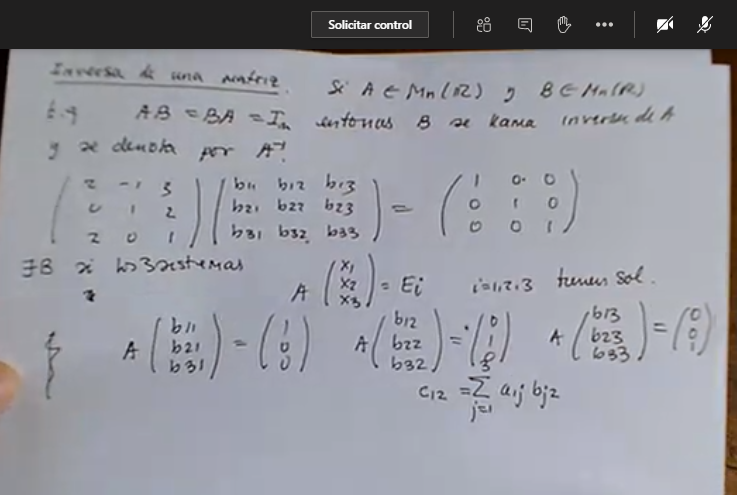 Solicitar control
Inversa de una matriz. Si A ∈ Mn(R) y B ∈ Mn(R)
t.q AB = BA = In entonces B se llama inversa de A
y se denota por A⁻¹.
( 2 -1 3 ) ( b11 b12 b13 ) = ( 1 0 0 )
( 0 1 2 ) ( b21 b22 b23 ) ( 0 1 0 )
( 2 0 1 ) ( b31 b32 b33 ) ( 0 0 1 )
∃B si los 3 sistemas
A ( x1 x2 x3 ) = Ei i=1,2,3 tienen sol.
A ( b11 b21 b31 ) = ( 1 0 0 ) A ( b12 b22 b32 ) = ( 0 1 0 ) A ( b13 b23 b33 ) = ( 0 0 1 )
C12 = 3 Σ j=1 a1j bj2